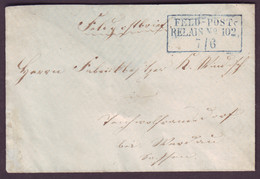 Feldpostbrief
FELD-POST
RELAIS No 102.
7/6
Herrn Fabrikbesitzer
bei Werdau
Sachsen